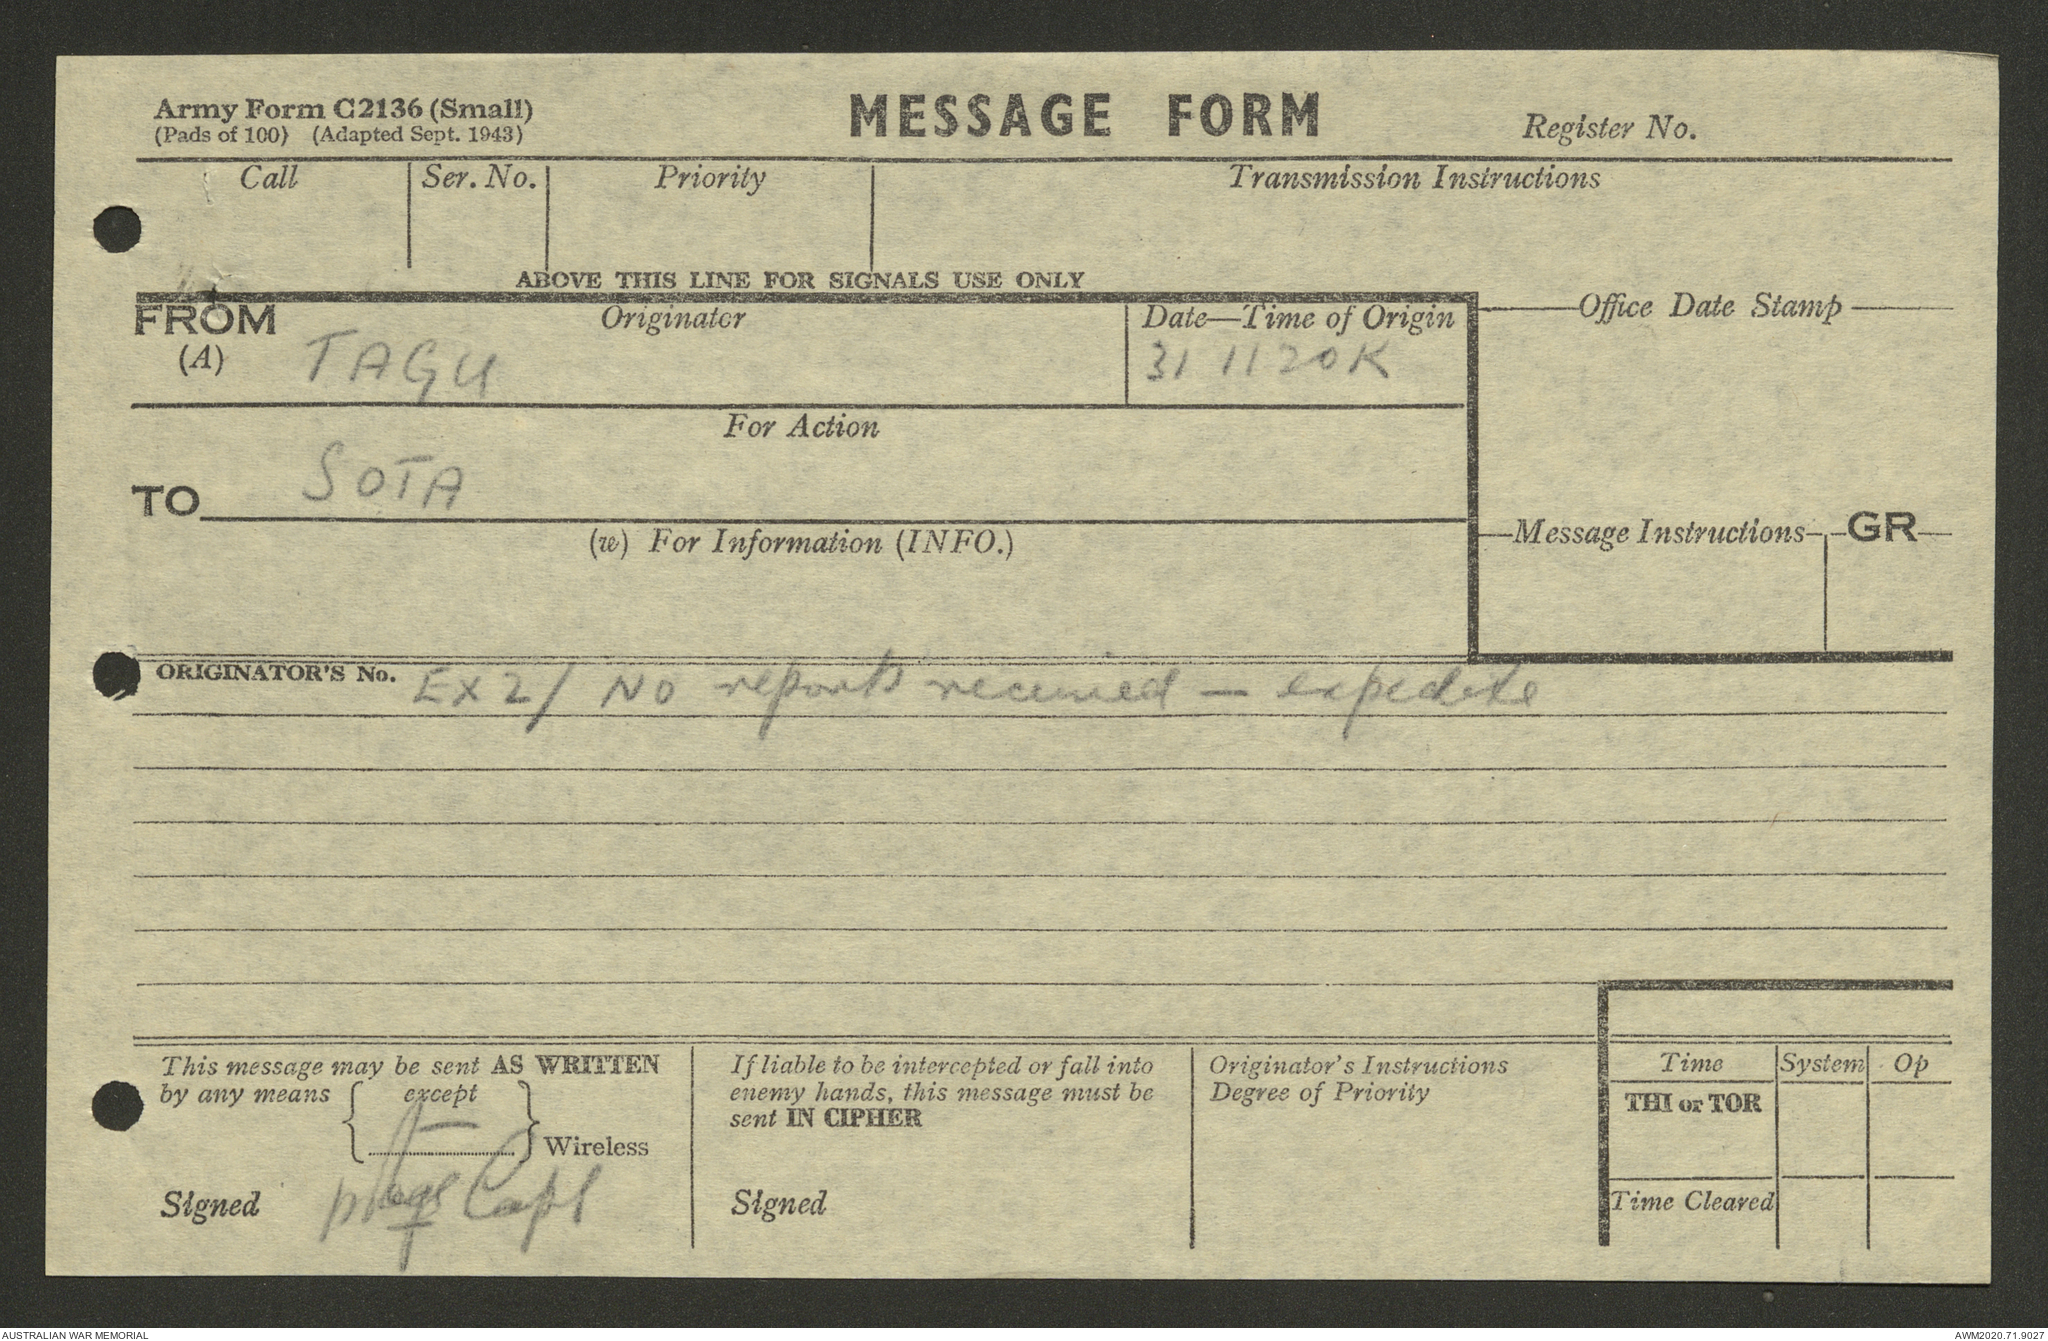 Army Form C2136 (Small)
(Pads of 100) (Adapted Sept. 1943)
MESSAGE FORM
Register No.
Call
Ser. No.
Priority
Transmission Instructions
ABOVE THIS LINE FOR SIGNALS USE ONLY
FROM
(A)
Originator
TAGU
Date—Time of Origin
31 1120K
Office Date Stamp
For Action
TO
SOTA
(w) For Information (INFO.)
Message Instructions
GR
ORIGINATOR'S No. Ex 2/ No reports received — expedite
This message may be sent AS WRITTEN
by any means { except
} Wireless
Signed
Capt
If liable to be intercepted or fall into
enemy hands, this message must be
sent IN CIPHER
Signed
Originator's Instructions
Degree of Priority
Time System Op
THI or TOR
Time Cleared
AUSTRALIAN WAR MEMORIAL
AWM2020.71.9027